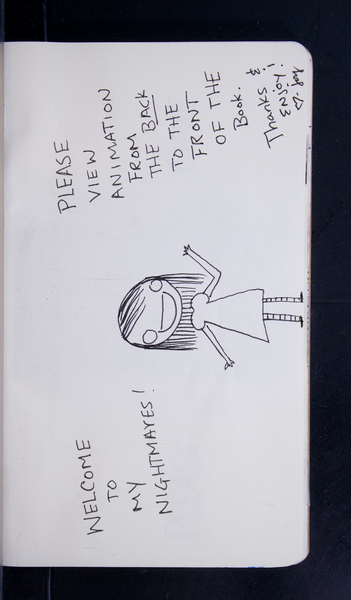 WELCOME
TO
MY
NIGHTMARES!
PLEASE
VIEW
ANIMATION
FROM
THE BACK
TO THE
FRONT
OF THE
Book.
Thanks &
ENJOY!